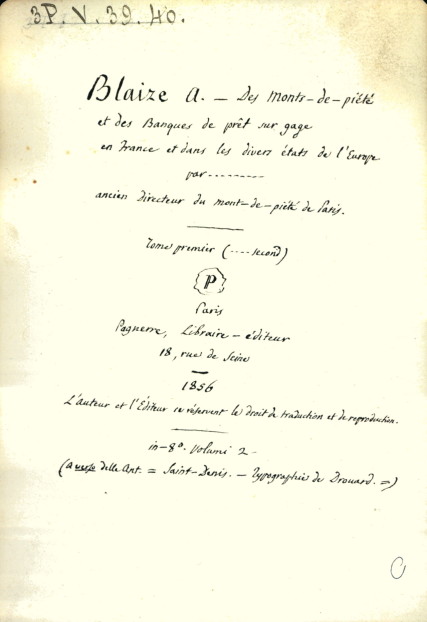 3P. V. 39. 40.
Blaize A. — Des Monts-de-piété
et des Banques de prêt sur gage
en France et dans les divers états de l'Europe
par ---------
ancien Directeur du mont-de-piété de Paris.
Tome premier (---- second)
P
Paris
Pagnerre, Libraire-éditeur
18, rue de Seine
1856
L'auteur et l'Éditeur se réservent le droit de traduction et de reproduction.
in-8º. Volumi 2 -
(a verso delle Ant. = Saint-Denis. — Typographie de Drouard. =)
C